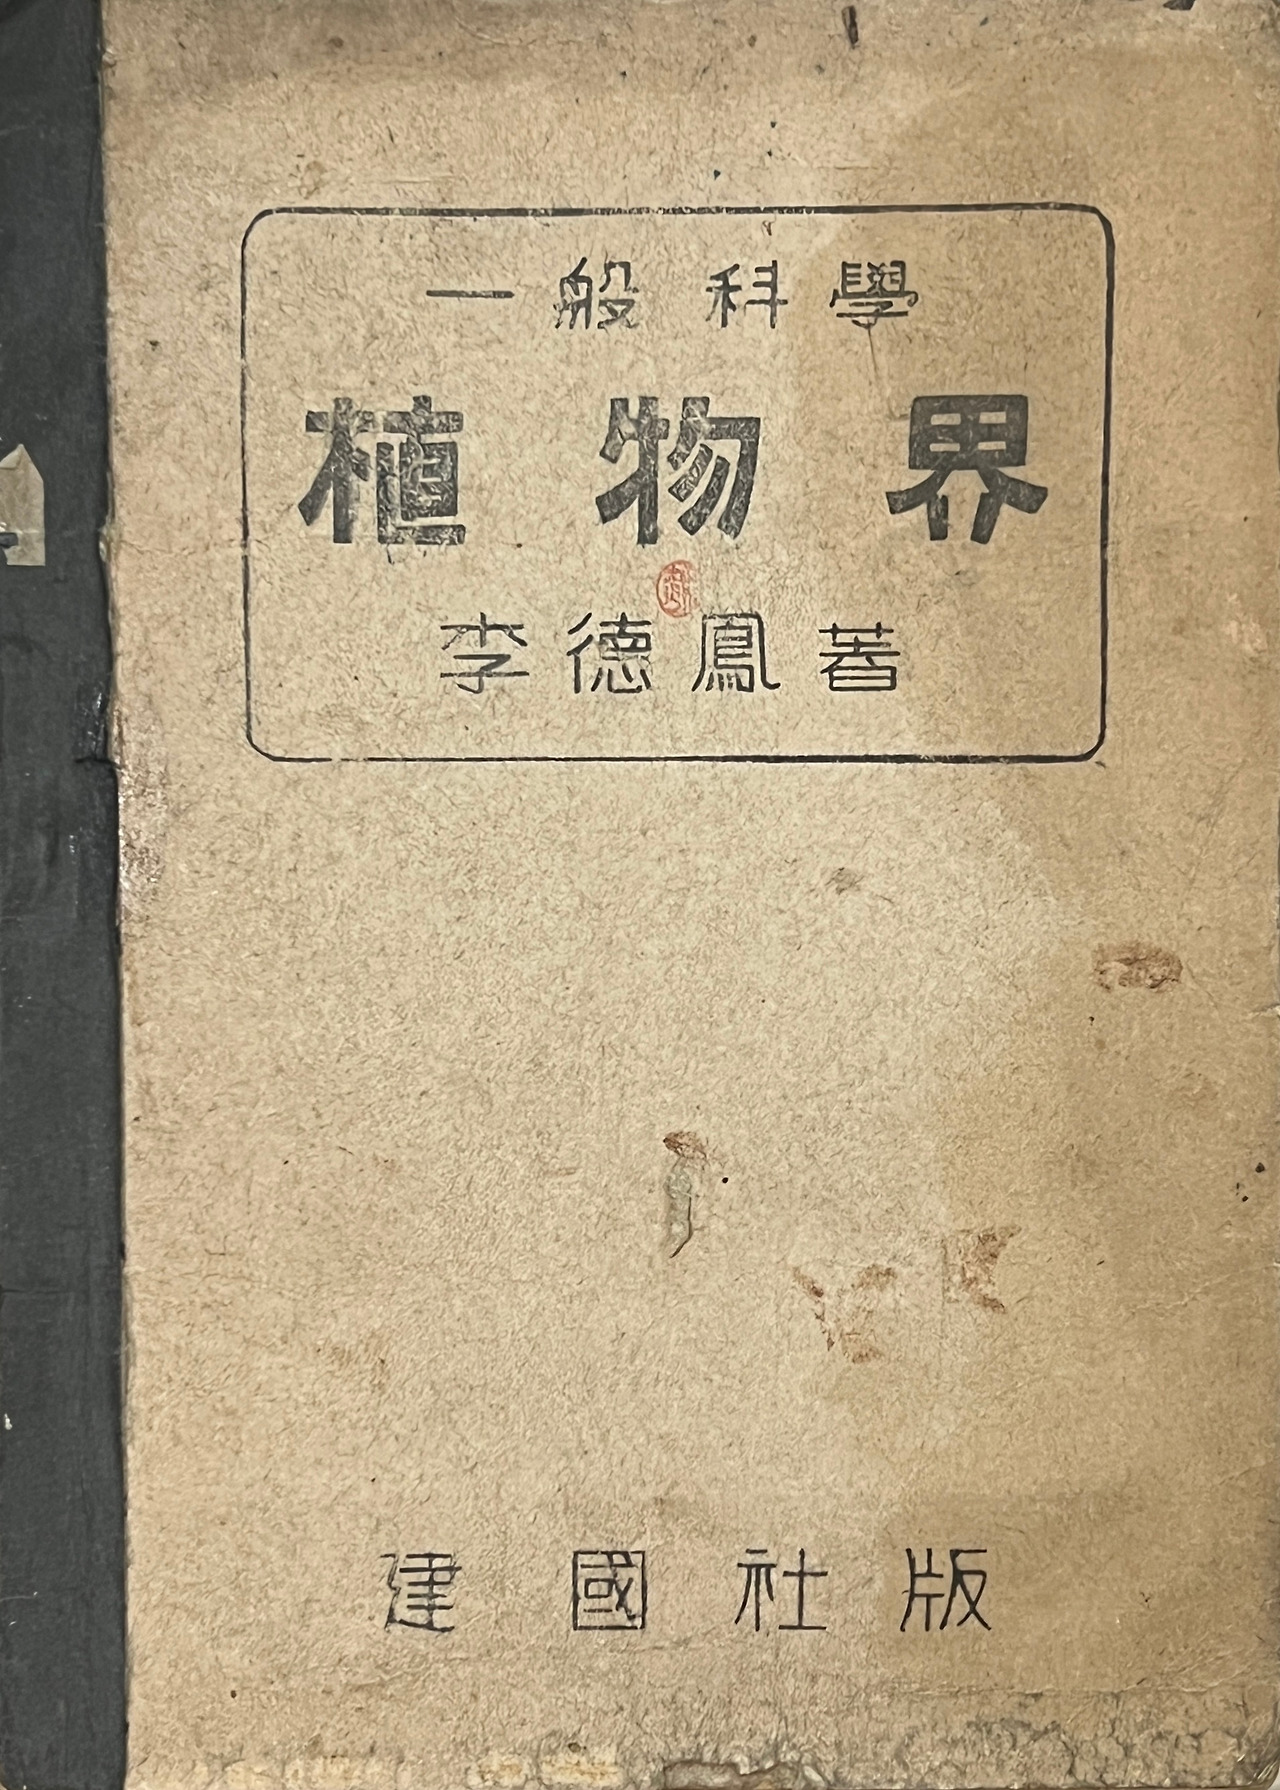 一般科學
植物界
李德鳳著
建國社版